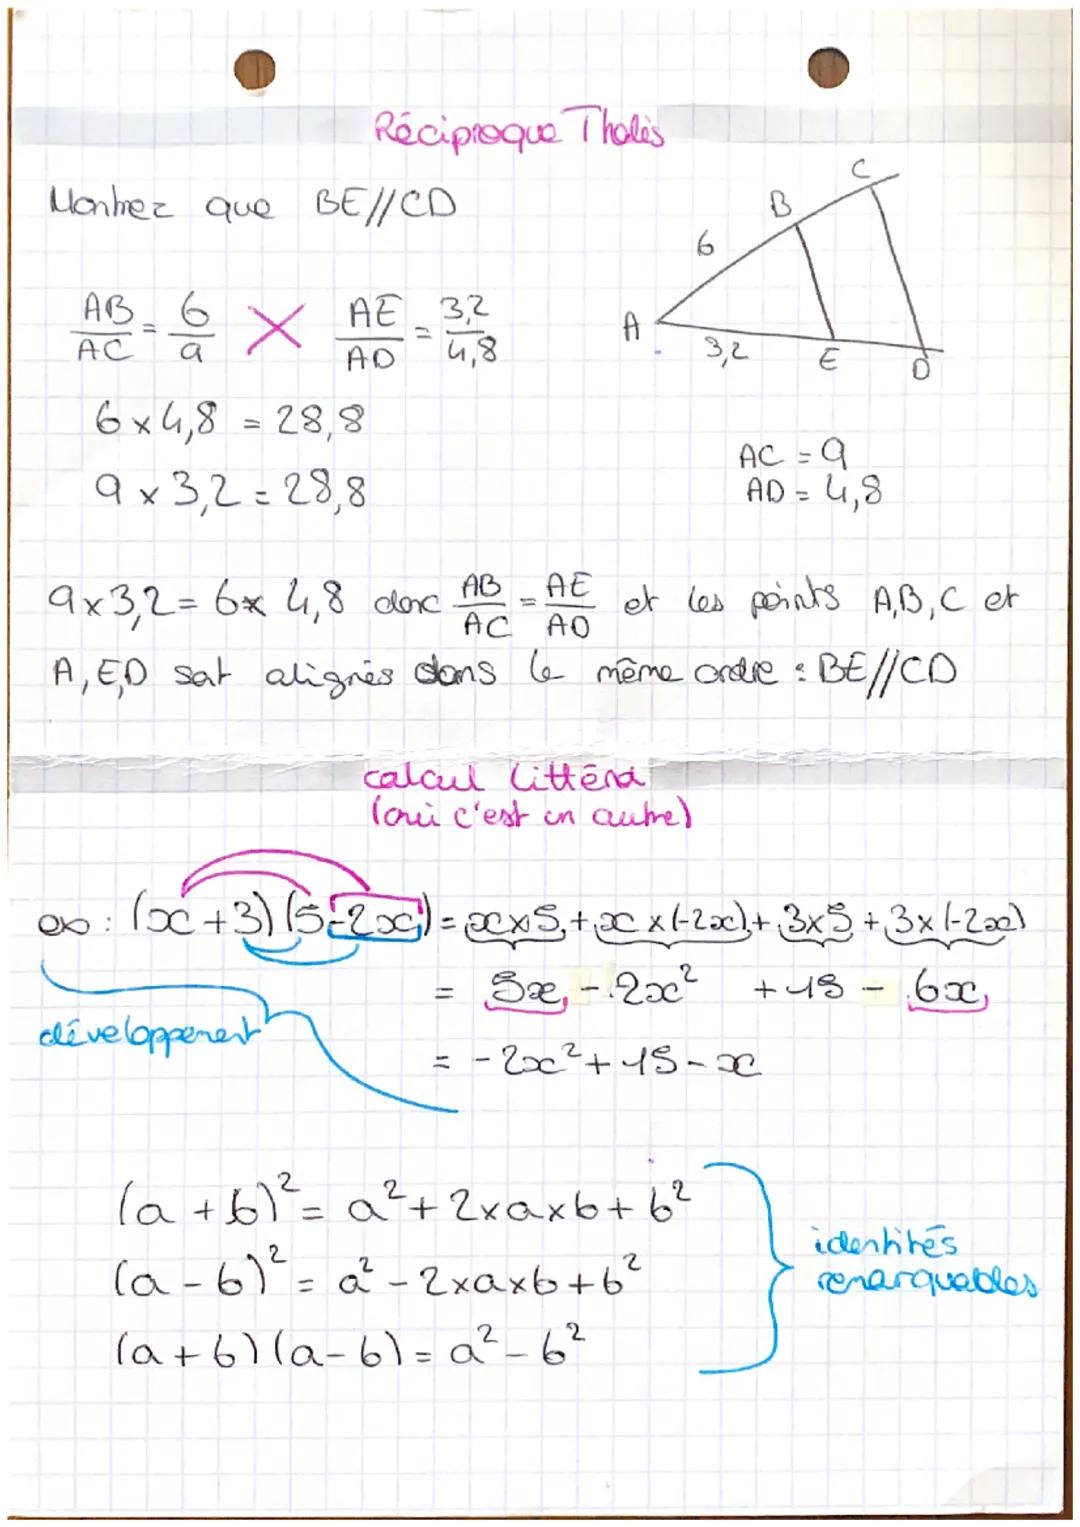 Réciproque Thalès
Montrez que BE//CD
C
B
6
A
3,2
E
D
AB/AC = 6/9 × AE/AD = 3,2/4,8
6 × 4,8 = 28,8
9 × 3,2 = 28,8
AC = 9
AD = 4,8
9 × 3,2 = 6 × 4,8 donc AB/AC = AE/AD et les points A,B,C et
A,E,D sont alignés dans le même ordre : BE//CD
calcul littéral
(oui c'est un autre)
ex : (x + 3)(5 - 2x) = x × 5 + x × (-2x) + 3 × 5 + 3 × (-2x)
= 5x - 2x² + 15 - 6x
développement
= - 2x² + 15 - x
(a + b)² = a² + 2 × a × b + b²
(a - b)² = a² - 2 × a × b + b²
(a + b)(a - b) = a² - b²
identités
remarquables